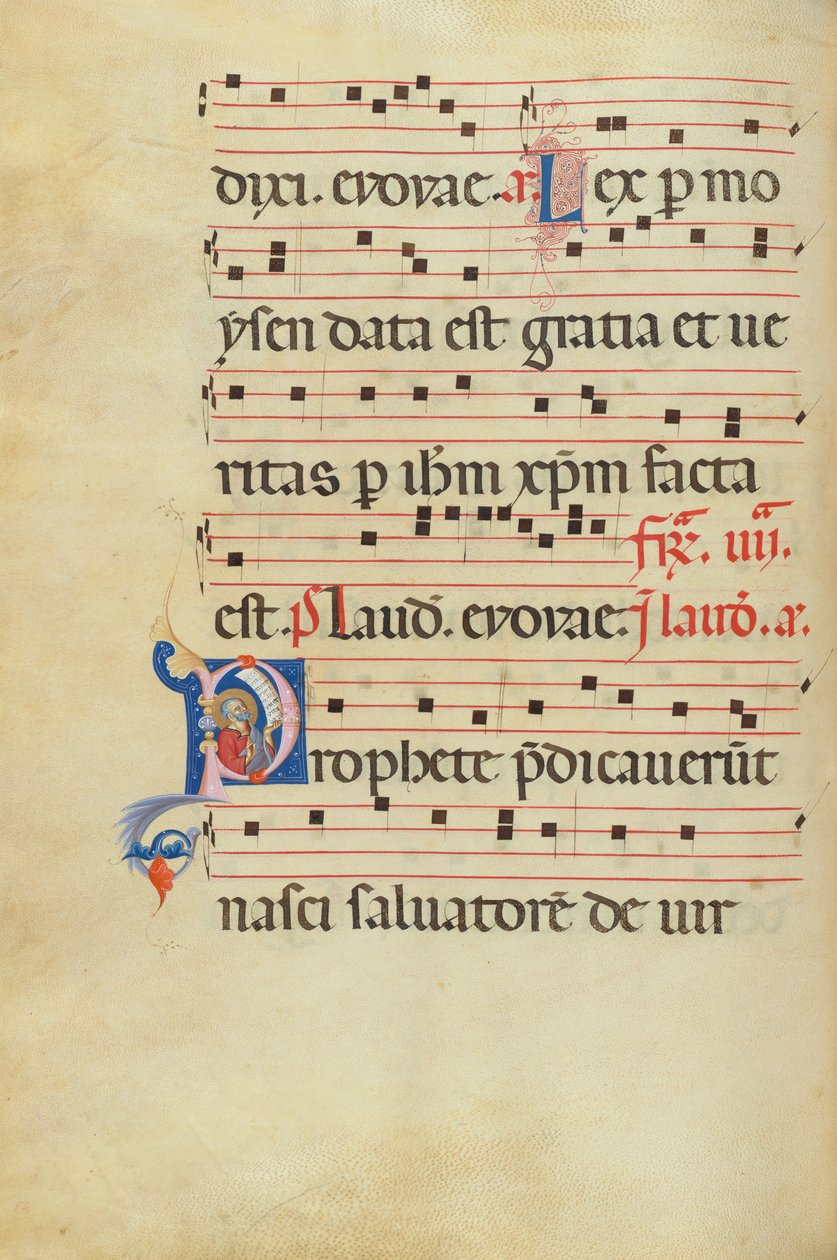 dixi. evovae. a. Lex p̱ mo
ẏsen data est gratia et ue
ritas p̱ ih̄m xp̄m facta
fr̄. iiij.
est. ps Laud̄. evovae. I laud̄. a.
Prophete p̄dicauerūt
nasci saluatorē de uir